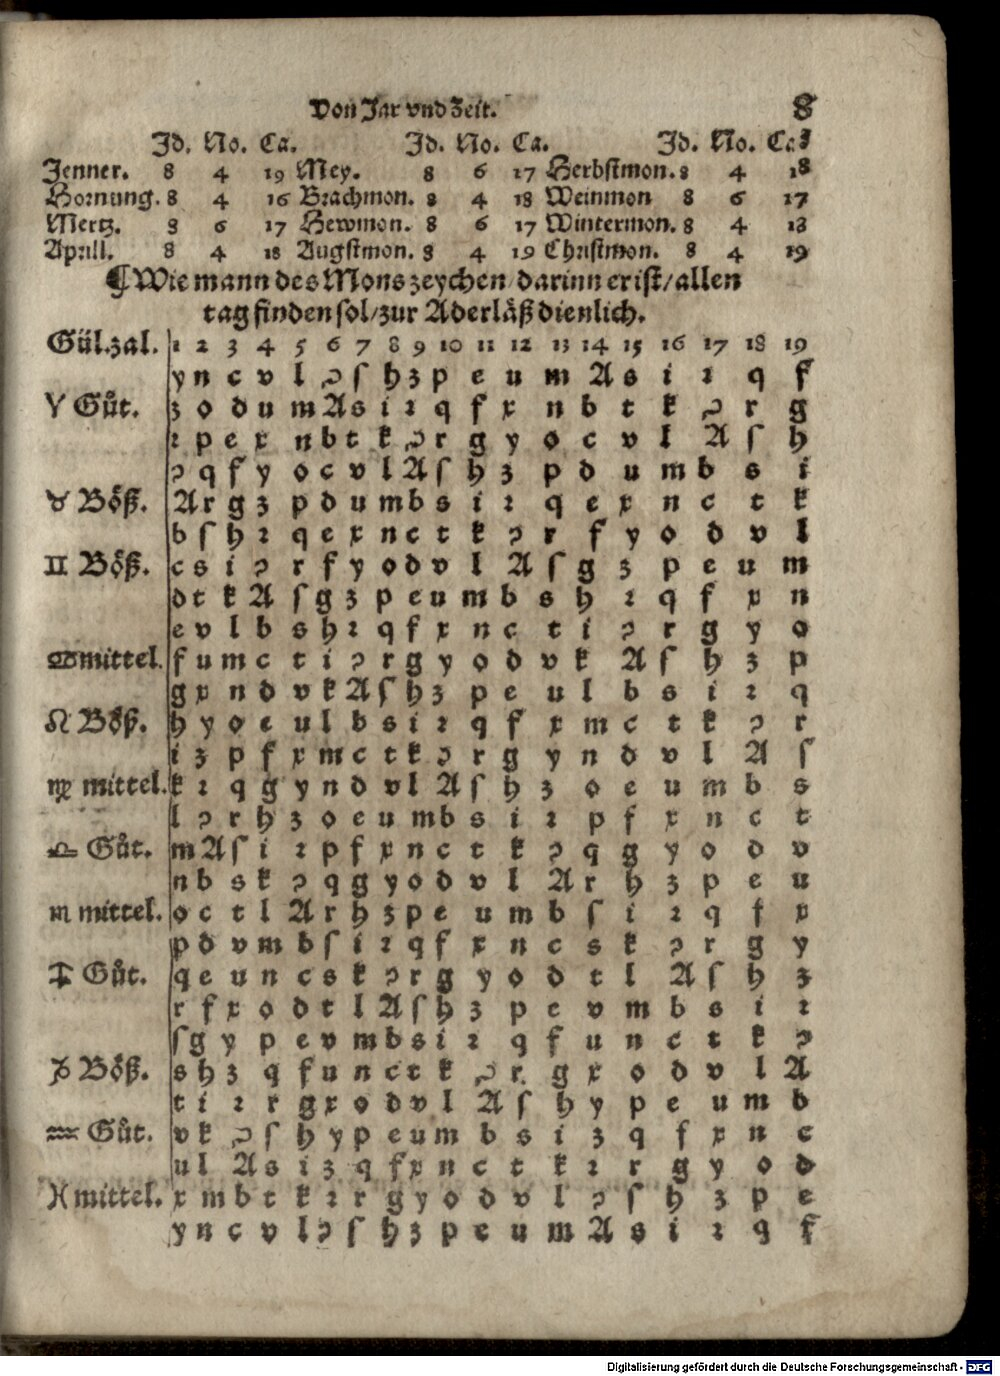 Von Jar vnd Zeit. 8
Id. No. Ca. Id. No. Ca. Id. No. Ca.
Jenner. 8 4 19 Mey. 8 6 17 Herbstmon. 8 4 18
Hornung. 8 4 16 Brachmon. 8 4 18 Weinmon 8 6 17
Mertz. 8 6 17 Hewmon. 8 6 17 Wintermon. 8 4 18
Aprill. 8 4 18 Augstmon. 8 4 19 Christmon. 8 4 19
¶ Wie mann des Mons zeychen / darinn er ist / allen
tag finden sol / zur Aderläß dienlich.
Gül.zal. 1 2 3 4 5 6 7 8 9 10 11 12 13 14 15 16 17 18 19
y n c v l ꝛ ſ h z p e u m A s i ꝛ q f
♈ Gůt. z o d u m A s i ꝛ q f x n b t k ɔ r g
ꝛ p e x n b t k ɔ r g y o c v l A ſ h
ɔ q f y o c v l A ſ h z p d u m b s i
♉ Böß. A r g z p d u m b s i ꝛ q e x n c t k
b ſ h ꝛ q e x n c t k ɔ r f y o d v l
♊ Böß. c s i ɔ r f y o d v l A ſ g z p e u m
d t k A ſ g z p e u m b s h ꝛ q f x n
e v l b s h ꝛ q f x n c t i ɔ r g y o
♋ mittel. f u m c t i ɔ r g y o d v k A ſ h z p
g x n d v k A ſ h z p e u l b s i ꝛ q
♌ Böß. h y o e u l b s i ꝛ q f x m c t k ɔ r
i z p f x m c t k ɔ r g y n d v l A ſ
♍ mittel. k ꝛ q g y n d v l A ſ h z o e u m b s
l ɔ r h z o e u m b s i ꝛ p f x n c t
♎ Gůt. m A ſ i ꝛ p f x n c t k ɔ q g y o d v
n b s k ɔ q g y o d v l A r h z p e u
♏ mittel. o c t l A r h z p e u m b ſ i ꝛ q f x
p d v m b ſ i ꝛ q f x n c s k ɔ r g y
♐ Gůt. q e u n c s k ɔ r g y o d t l A ſ h z
r f x o d t l A ſ h z p e v m b s i ꝛ
ſ g y p e v m b s i ꝛ q f u n c t k ɔ
♑ Böß. s h z q f u n c t k ɔ r g x o d v l A
t i ꝛ r g x o d v l A ſ h y p e u m b
♒ Gůt. v k ɔ ſ h y p e u m b s i z q f x n c
u l A s i z q f x n c t k ꝛ r g y o d
♓ mittel. x m b t k ꝛ r g y o d v l ɔ ſ h z p e
y n c v l ɔ ſ h z p e u m A s i ꝛ q f
Digitalisierung gefördert durch die Deutsche Forschungsgemeinschaft - DFG